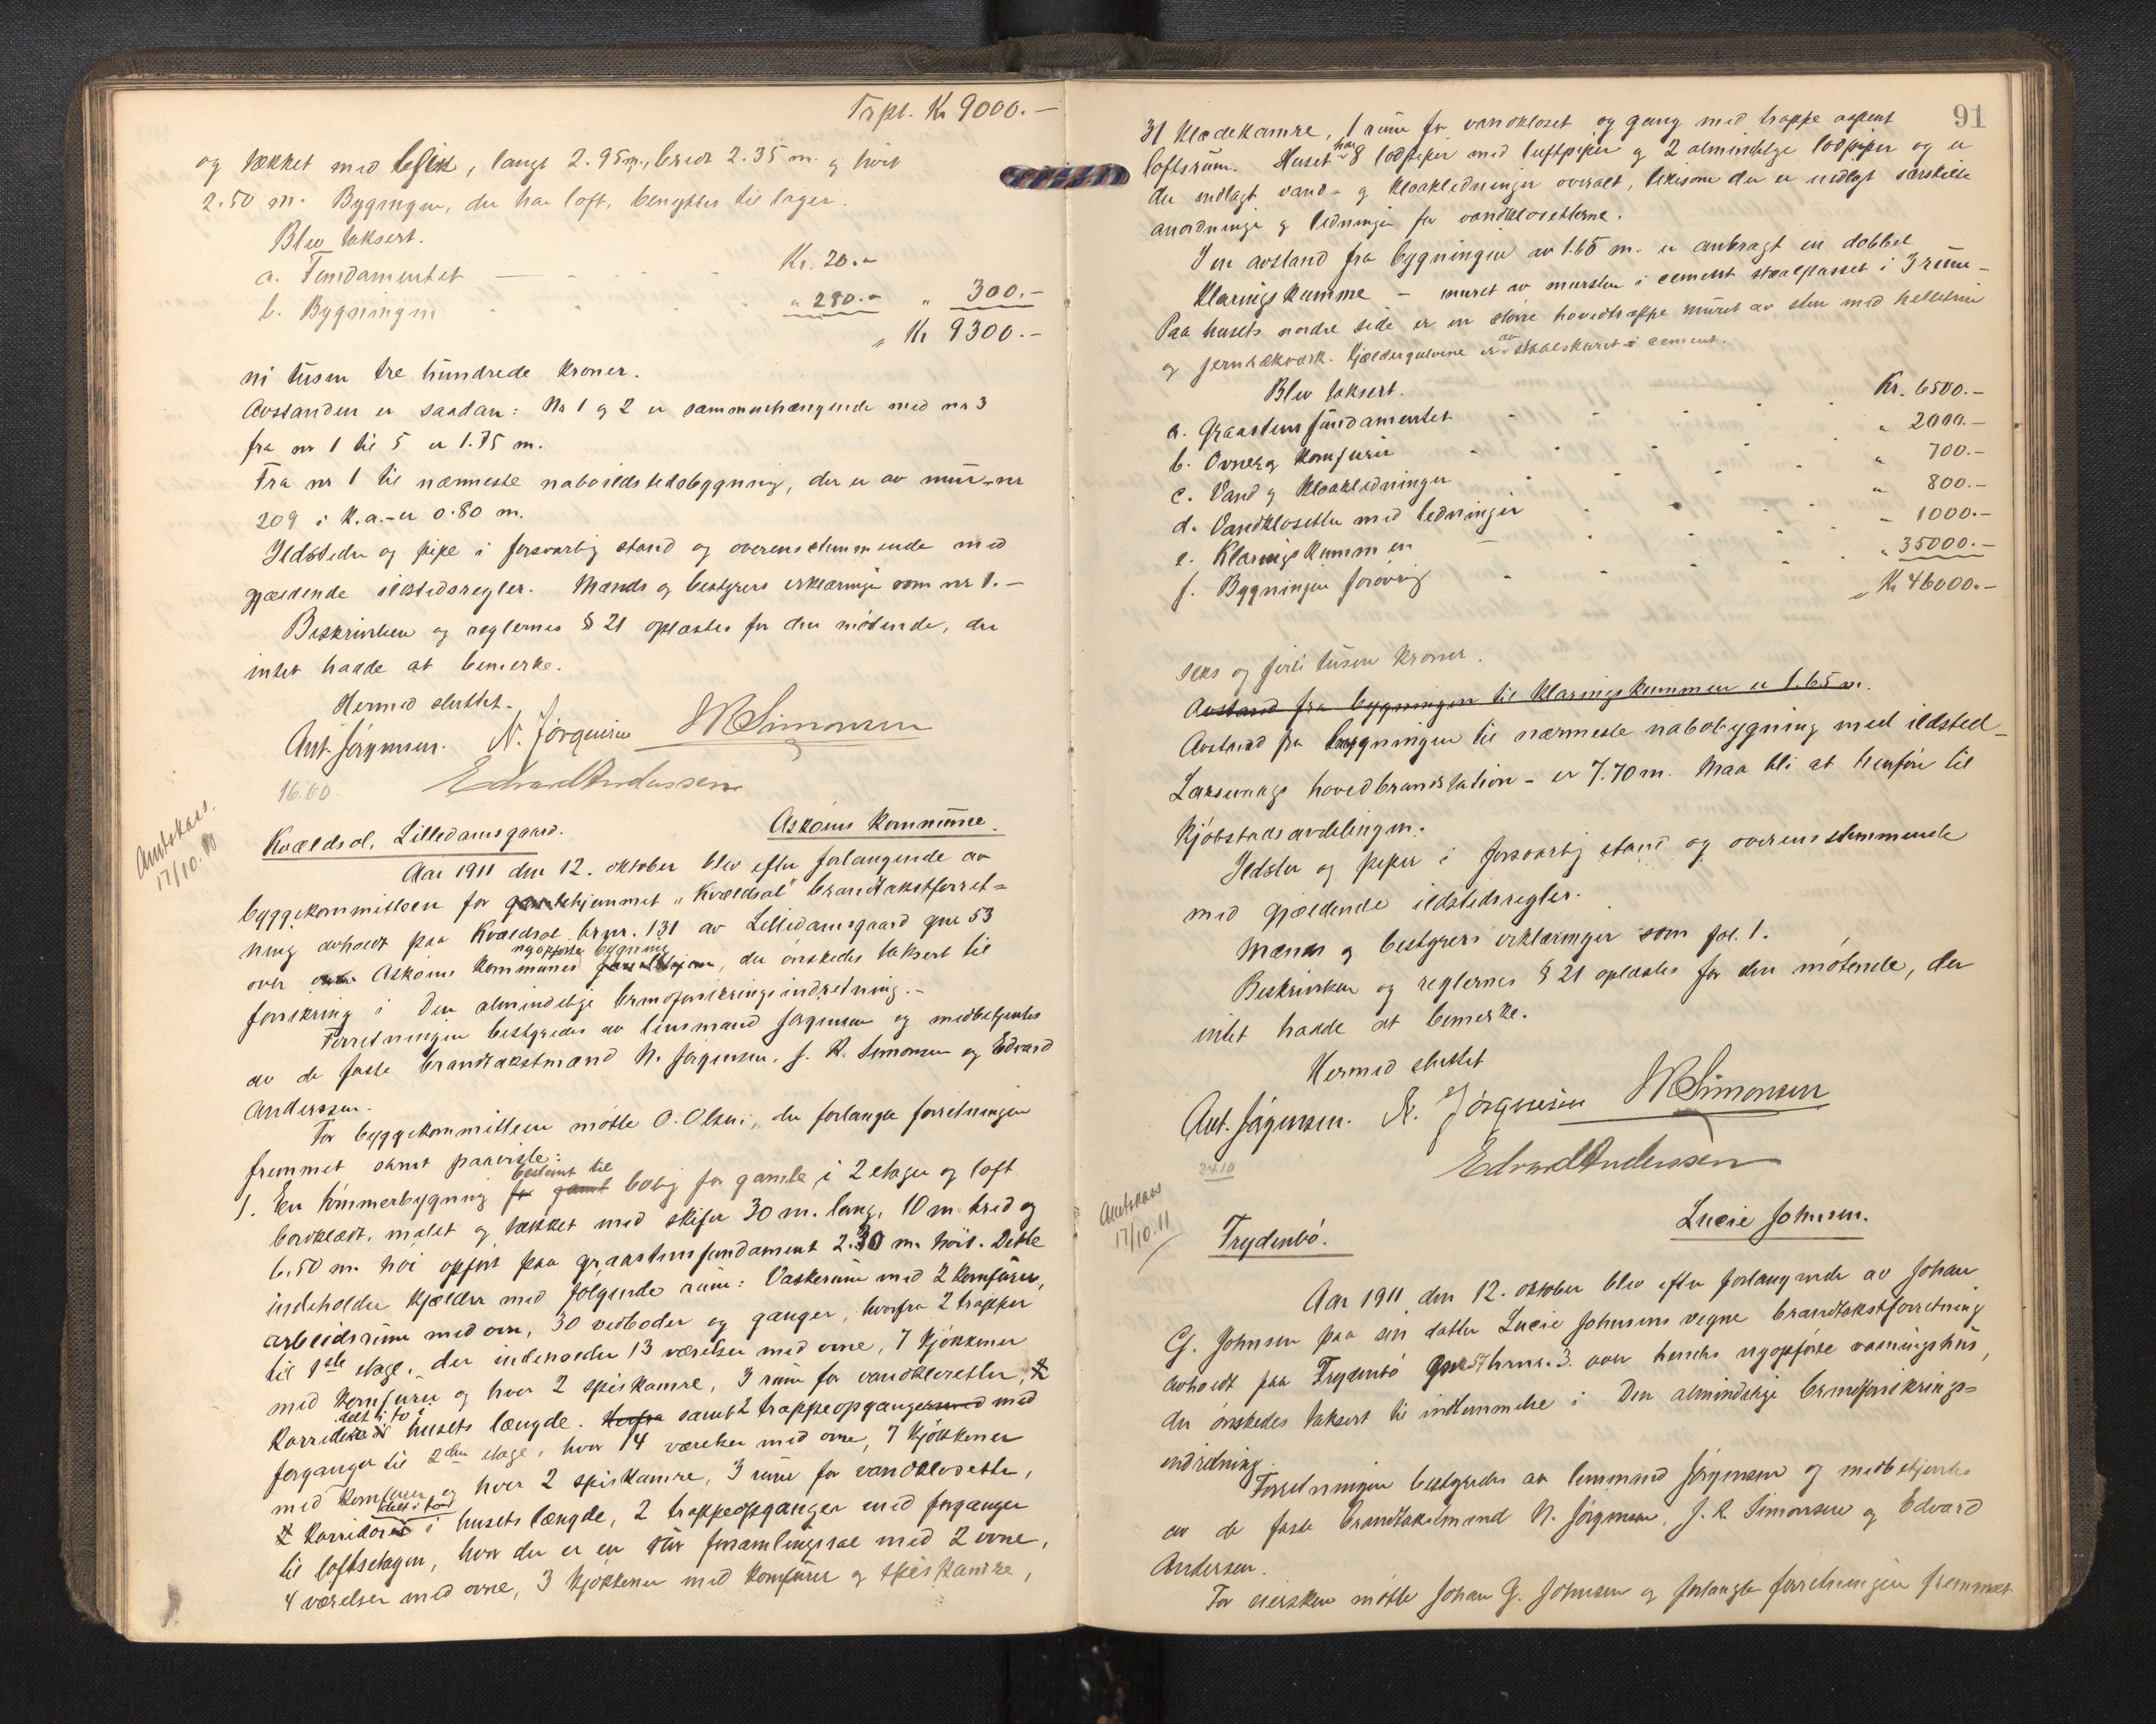 Trpt. Kr 9000.-
og tækket med, langt 2.95 m, bredt 2.35 m. og høit
2.50 m. Bygningen, der har loft, benyttes til lager.
Blev taksert.
a. Fundamentet Kr. 20.-
b. Bygningen " 280.- " 300.-
" Kr 9300.-
ni tusen tre hundrede kroner.
Avstanden er saadan: Nr 1 og 2 er sammenhængende med nr 3
fra nr 1 til 5 er 1.75 m.
Fra nr 1 til nærmeste naboildstedsbygning, der er av mur - nr
209 i K.a. - er 0.80 m.
Ildsteder og pipe i forsvarlig stand og overensstemmende med
gjældende ildstedsregler. Mænds og bestyrers erklæringer som nr 1.-
Beskrivelsen og reglernes § 21 oplæstes for den møtende, der
intet hadde at bemerke.
Hermed sluttet.
Ant. Jørgensen. N. Jørgensen J R Simonsen
16.60. Edvard Anderssen
Amtskas. 17/10.11
Kvældsol, Lilledamsgaard. Askøens kommune.
Aar 1911 den 12. oktober blev efter forlangende av
byggekommitteen for gamlehjemmet "Kvældsol" brandtakstforret=
ning avholdt paa Kvældsol brnr. 131 av Lilledamsgaard gnr 53
over Askøens kommunes nyopførte bygning, der ønskedes taksert til
forsikring i Den almindelige brandforsikringsindretning.-
Forretningen bestyredes av lensmand Jørgensen og medbetjentes
av de faste brandtakstmænd N. Jørgensen, J. R. Simonsen og Edvard
Anderssen.
For byggekommitteen møtte O. Olsen, der forlangte forretningen
fremmet samt paaviste:
1. En tømmerbygning bestemt til bolig for gamle i 2 etager og loft
bordklædt, malet og tækket med skifer 30 m. lang, 10 m. bred og
6.50 m. høi opført paa graastensfundament 2.30 m. høit. Dette
indeholder kjælder med følgende rum: Vaskerum med 2 komfurer,
arbeidsrum med ovn, 30 vedboder og ganger, hvorfra 2 trapper
til 1ste etage, der indeholder 13 værelser med ovne, 7 kjøkkener
med komfurer og hver 2 spiskamre, 3 rum for vandklosetter,
Korridor delt i to i husets længde. samt 2 trappeopganger med
forganger til 2den etage, hvor 14 værelser med ovne, 7 kjøkkener
med komfurer og hver 2 spiskamre, 3 rum for vandklosetter,
Korridor delt i to i husets længde, 2 trappeopganger med forganger
til loftsetagen, hvor der er en stor forsamlingssal med 2 ovne,
4 værelser med ovne, 3 kjøkkener med komfurer og spiskamre,
91
31 klædekamre, 1 rum for vandkloset og gang med trappe
loftsrum. Huset har 8 lodpiper med luftpiper og 2 almindelige lodpiper og er
der indlagt vand- og kloakledninger overalt, likesom der er indlagt særskilte
anordninger og ledninger for vandklosetterne.
I en avstand fra bygningen av 1.65 m. er anbragt en dobbel
klaringskumme - muret av mursten i cement staalpusset i 3 rum -
Paa husets nordre side er en større hovedtrappe muret av sten med hellelrin
og jernrækværk. Kjældergulvene er av staalskuret cement.
Blev taksert.
a. Graastensfundamentet Kr. 6500.-
b. Ovner og komfurer " 2000.-
c. Vand og kloakledninger " 700.-
d. Vandklosetter med ledninger " 800.-
e. Klaringskummen " 1000.-
f. Bygningen forøvrig " 35000.-
" Kr 46000.-
seks og firti tusen kroner.
Avstand fra bygningen til klaringskummen er 1.65 m.
Avstand fra bygningen til nærmeste nabobygning med ildsted -
Laksevaags hovedbrandstation - er 7.70 m. Maa bli at henføre til
Kjøbstadsavdelingen.
Ildsteder og piper i forsvarlig stand og overensstemmende
med gjældende ildstedsregler.
Mænds og bestyrers erklæringer som fol. 1.
Beskrivelsen og reglernes § 21 oplæstes for den møtende, der
intet hadde at bemerke.
Hermed sluttet
Ant. Jørgensen. N. Jørgensen J R Simonsen
24.10 Edvard Anderssen
Amtskas 17/10.11
Frydenbø. Lucie Johnsen.
Aar 1911 den 12. oktober blev efter forlangende av Johan
G. Johnsen paa sin datter Lucie Johnsens vegne brandtakstforretning
avholdt paa Frydenbø brnr. 3. over hendes nyopførte vaaningshus,
der ønskedes taksert til indlemmelse i Den almindelige brandforsikrings=
indretning.
Forretningen bestyredes av lensmand Jørgensen og medbetjentes
av de faste brandtakstmænd N. Jørgensen, J. R. Simonsen og Edvard
Andersen.
For eiersken møtte Johan G. Johnsen og forlangte forretningen fremmet